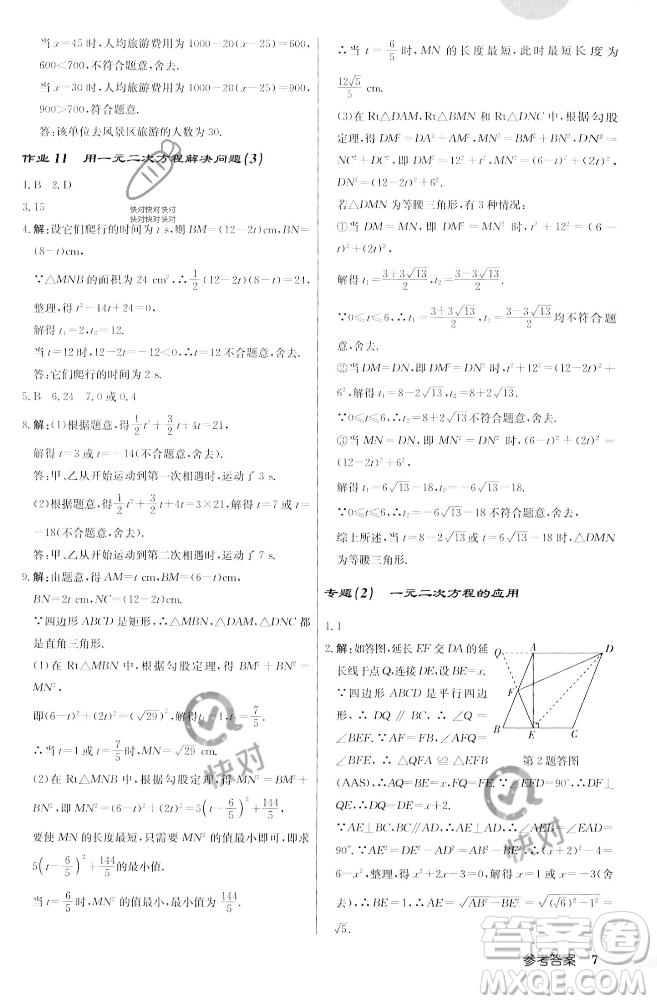 当 x=45 时,人均旅游费用为 1000-20(x-25)=600,
600<700,不符合题意,舍去.
当 x=30 时,人均旅游费用为 1000-20(x-25)=900,
900>700,符合题意.
答:该单位去风景区旅游的人数为 30.
作业 11 用一元二次方程解决问题(3)
1. B 2. D
3. 15
4. 解:设它们爬行的时间为 t s,则 BM=(12-2t)cm,BN=
(8-t)cm.
∵△MNB 的面积为 24 cm²,∴1/2(12-2t)(8-t)=24,
整理,得 t²-14t+24=0,
解得 t₁=2,t₂=12.
当 t=12 时,12-2t=12-2×12<0,不合题意,舍去.
答:它们爬行的时间为 2 s.
5. B 6. 24 7. 0 或 0.4
8. 解:(1)根据题意,得 1/2 t²+3/2 t+4t=21,
解得 t=3 或 t=-14(不合题意,舍去).
答:甲、乙从开始运动到第一次相遇时,运动了 3 s.
(2)根据题意,得 1/2 t²+3/2 t+4t=3×21,解得 t=7 或 t=
-18(不合题意,舍去).
答:甲、乙从开始运动到第二次相遇时,运动了 7 s.
9. 解:由题意,得 AM=t cm,BM=(6-t)cm,
BN=2t cm,NC=(12-2t)cm.
∵四边形 ABCD 是矩形,∴△MBN、△DAM、△DNC 都
是直角三角形.
(1)在 Rt△MNB 中,根据勾股定理,得 BM²+BN²=
MN²,
即(6-t)²+(2t)²=(√29)²,解得 t₁=1,t₂=7/5,
∴当 t=1 或 t=7/5 时,MN=√29 cm.
(2)在 Rt△MNB 中,根据勾股定理,得 MN²=BM²+
BN²=(6-t)²+(2t)²=5t²-12t+36=5(t-6/5)²+144/5,
要使 MN 的长度最短,只需要 MN² 的值最小即可,即求
5(t-6/5)²+144/5 的最小值.
当 t=6/5 时,MN² 的值最小,最小值为 144/5.
∴当 t=6/5 时,MN 的长度最短,此时最短长度为
12√5/5 cm.
(3)在 Rt△DAM、Rt△BMN 和 Rt△DNC 中,根据勾股
定理,得 DM²=DA²+AM²=12²+t²,MN²=BM²+
BN²=(6-t)²+(2t)²,DN²=NC²+DC²=(12-2t)²+
6².
若△DMN 为等腰三角形,有 3 种情况:
①当 DM=MN 时,DM²=MN²,即 t²+12²=(6-
t)²+(2t)²,
解得 t₁=(3+3√13)/2,t₂=(3-3√13)/2.
∵0≤t≤6,∴t₁=(3+3√13)/2,t₂=(3-3√13)/2 均不符合题
意,舍去.
②当 DM=DN 时,DM²=DN²,即 t²+12²=(12-2t)²+
6²,解得 t₁=8-2√13,t₂=8+2√13.
∵0≤t≤6,∴t₂=8+2√13 不符合题意,舍去.
③当 MN=DN 时,MN²=DN²,即(6-t)²+(2t)²=
(12-2t)²+6²,
解得 t₁=6√13-18,t₂=-6√13-18.
∵0≤t≤6,∴t₂=-6√13-18 不符合题意,舍去.
综上所述,当 t=8-2√13 或 t=6√13-18 时,△DMN
为等腰三角形.
专题(2) 一元二次方程的应用
1. 1
2. 解:如答图,延长 EF 交 DA 的延
长线于点 Q,连接 DE,设 BE=x.
∵四边形 ABCD 是平行四边
形,∴DQ∥BC,∴∠Q=
∠BEF,∴△QFA≌△BEF
(AAS),∴AQ=BE=x.∵∠EFD=90°,∴DF⊥
QE,∴DQ=DE=x+2.
∵AE⊥BC,BC∥AD,∴AE⊥AD,∴∠AEB=∠EAD=
90°.∵AE²=DE²-AD²=AB²-BE²,∴(x+2)²-4=
6-x²,整理,得 2x²+4x-6=0,解得 x=1 或 x=-3(舍
去),∴BE=1,∴AE=√(AB²-BE²)=√((√6)²-1²)=
√5.
Q A D F B E C
第 2 题答图
快对快对快对
快对快对快对
快对快对
快对
快对
答案圈
MXQE.COM
参考答案 7